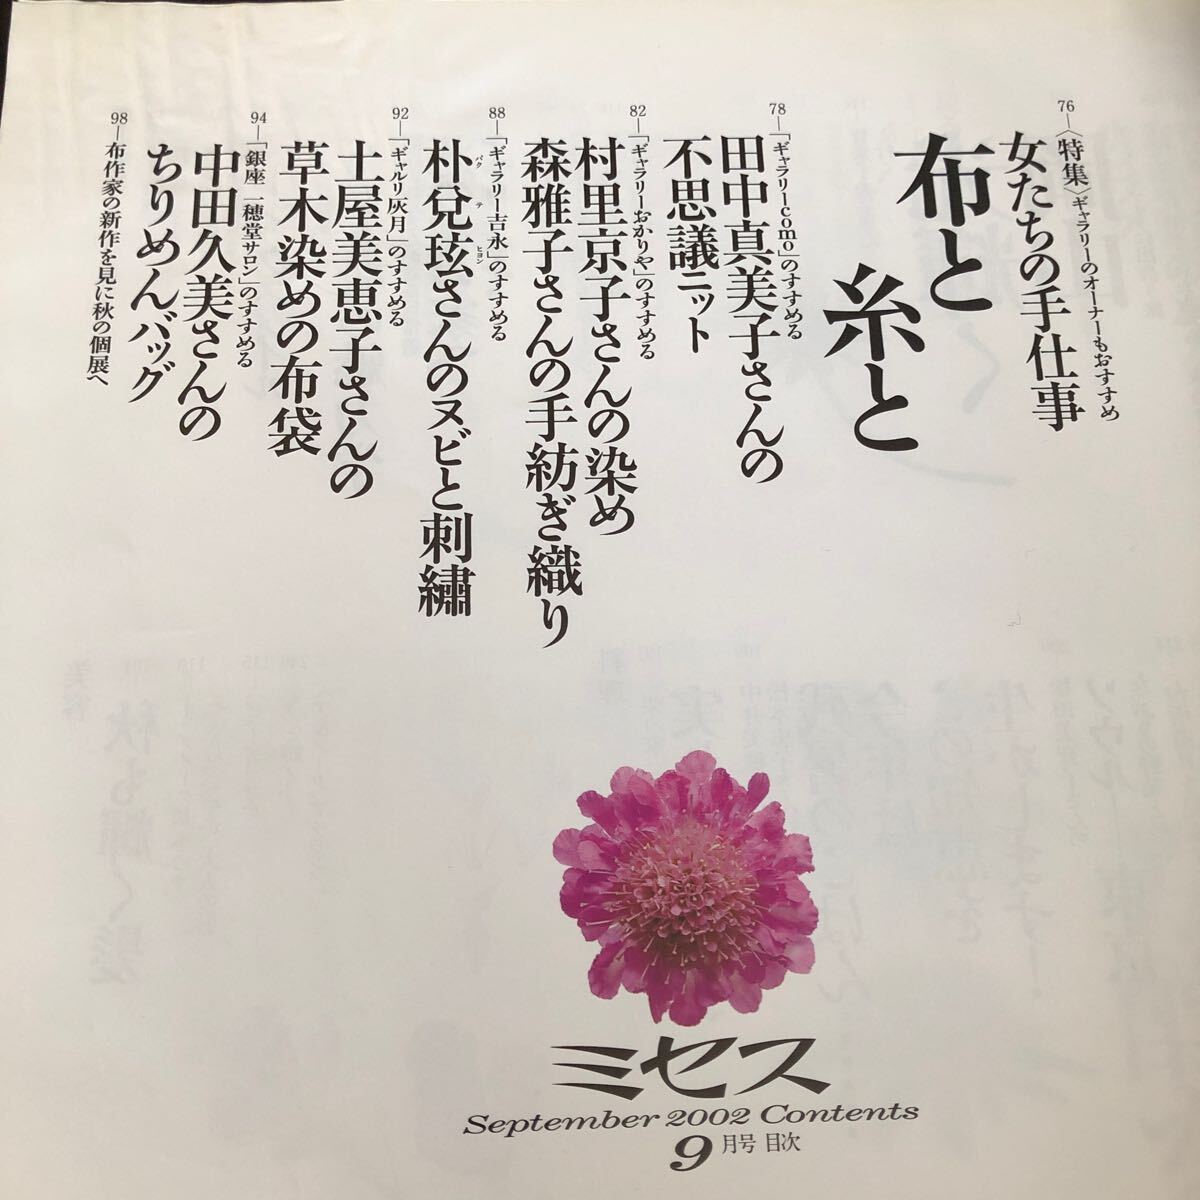 76―〈特集〉ギャラリーのオーナーもおすすめ
女たちの手仕事
布と
糸と
78―「ギャラリーcomo」のすすめる
田中真美子さんの
不思議ニット
82―「ギャラリーおかりや」のすすめる
村里京子さんの染め
森雅子さんの手紡ぎ織り
88―「ギャラリー吉永」のすすめる
朴兌玹さんのヌビと刺繡
パク テ ヒョン
92―「ギャルリ灰月」のすすめる
土屋美恵子さんの
草木染めの布袋
94―「銀座 一穂堂サロン」のすすめる
中田久美さんの
ちりめんバッグ
98―布作家の新作を見に秋の個展へ
ミセス
September 2002 Contents
9月号 目次